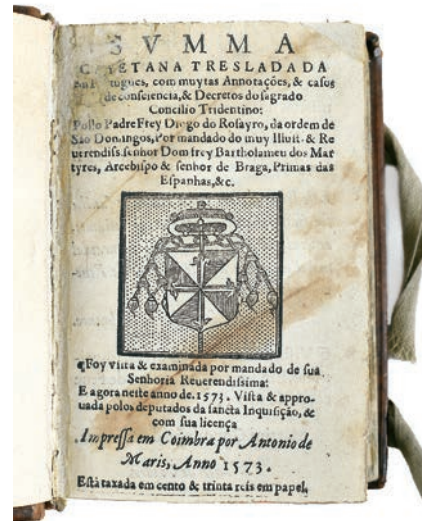 SVMMA
CAYETANA TRESLADADA
em Portugues, com muytas Annotações, & casos
de consciencia, & Decretos do sagrado
Concilio Tridentino:
Pollo Padre Frey Diogo do Rosayro, da ordem de
São Domingos, Por mandado do muy Illust. & Re
uerendiss. senhor Dom frey Bartholameu dos Mar
tyres, Arcebispo & senhor de Braga, Primas das
Espanhas, &c.
Foy vista & examinada por mandado de sua
Senhoria Reuerendissima:
E agora neste anno de. 1573. Vista & appro-
uada polos deputados da sancta Inquisição, &
com sua licença
Impressa em Coimbra por Antonio de
Maris, Anno 1573.
Està taxada em cento & trinta reis em papel,